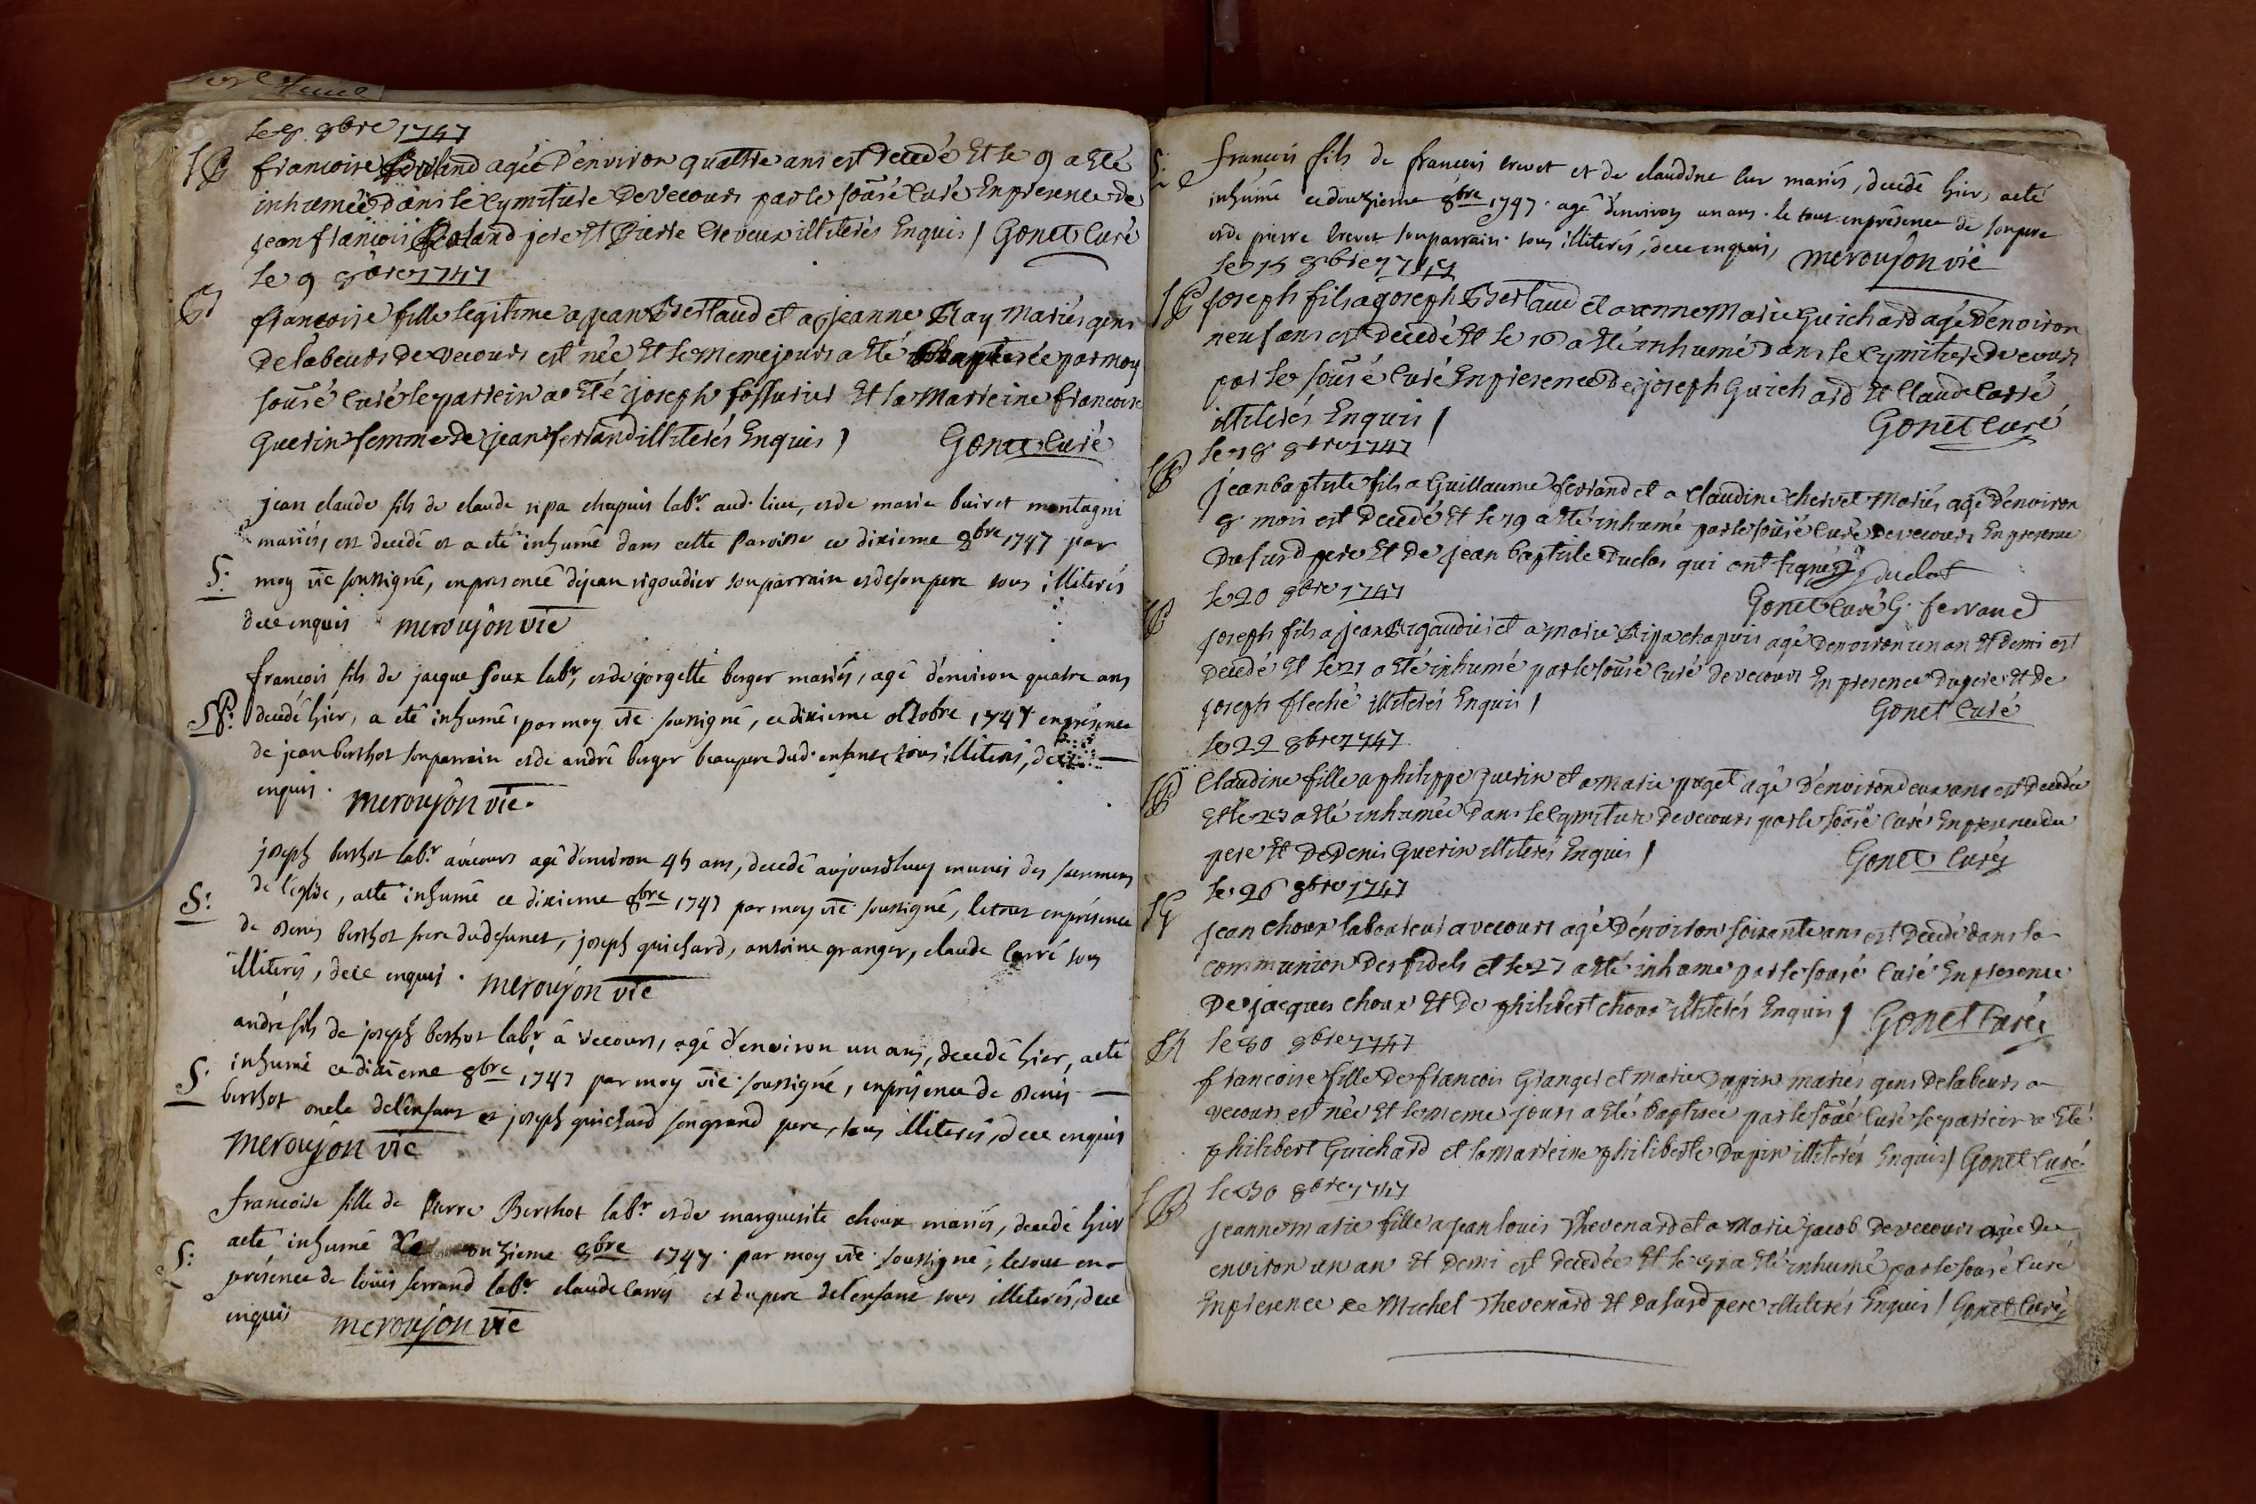 le 8 8bre 1747
francoise ferland agée d'environ quattre ans est decedé Et le 9 a Eté
inhumée dans le Cymitiere De Vecours par le sousé Curé En presence de
jean francois feraland pere Et Pierre Cheveux illiterés Enquis / Gonet Curé
le 9 8bre 1747
francoise fille legitime a jean Bertaud et a jeanne Ray Mariés gens
De labeurs De vecours est née Et le meme jours a Eté Baptisée par moy
sousé Curé le parrein a Eté joseph fossurier Et la Marreine francoise
Guerin femme De jean ferrand illiterés Enquis / Gonet Curé
jean claude fils de claude ripa chapuis labr. aud. lieu, et de marie buiret montagni
mariés, est decedé et a eté inhumé dans cette Paroisse ce dixieme 8bre 1747 par
S: moy vic soussigné, en presence de jean rigoudier son parrain et de son pere tous illiterés
de ce enquis meroujon vic
francois fils de jacque soux labr, et de gorgette berger mariés, agé d'environ quatre ans
decedé hier, a eté inhumé, par moy vic soussigné, ce dixieme octobre 1747 en présence
de jean berthot son parrain et de andré berger beaupere dud. enfant, tous illiterés, de ce
enquis. meroujon vic.
joseph berthot labr. à vecours agé d'environ 45 ans, decedé aujourd'huy munis des sacremens
S: de l'eglise, a eté inhumé ce dixieme 8bre 1747 par moy vic soussigné, le tout en présence
de Denis berthot frere du defunct, joseph guichard, antoine granger, claude Carré tous
illiterés, de ce enquis. meroujon vic
andré fils de joseph berthot labr. à vecours, agé d'environ un ans, decedé hier, a eté
S: inhumé ce dixieme 8bre 1747 par moy vic soussigné, en présence de Denis
berthot oncle de l'enfant et joseph guichard son grand pere, tous illiterés, de ce enquis
meroujon vic
francoise fille de Pierre Berthot labr. et de marguerite choux mariés, decedé hier
a eté inhumé Le onzieme 8bre 1747. par moy vic soussigné, le tout en
S: présence de louis ferrand labr. claude Carré et du pere de l'enfant tous illiterés, de ce
enquis meroujon vic
S: francois fils de francois Crevet et de claudine Cur mariés, decedé hier, a eté
inhumé ce douzieme 8bre 1747. agé d'environ un ans. le tout en présence de son pere
et de pierre Crevet son parrain. tous illiterés, de ce enquis, meroujon vic
le 15 8bre 1747
joseph fils a joseph Bertaud et a anne Marie Guichard agé D'environ
neuf ans est decedé Et le 16 a Eté inhumé Dans le Cymitiere De vecours
par le sousé Curé En presence De joseph Guichard Et Claude Carré
illiterés Enquis / Gonet Curé
le 18 8bre 1747
jean baptiste fils a Guillaume ferrand et a Claudine Chervet Mariés agé D'environ
8 mois est Decedé Et le 19 a Eté inhumé par le sousé Curé De vecours En presence
Du susd pere Et De jean baptiste Duclos qui ont signés / Duclos
le 20 8bre 1747 Gonet Curé G. ferrand
joseph fils a jean Rigaudier et a Marie Ripa chapuis agé D'environ un an Et Demi est
decedé Et le 21 a Eté inhumé par le sousé Curé De vecours En presence Du pere Et De
joseph fleché illiterés Enquis / Gonet Curé
le 22 8bre 1747
Claudine fille a philippe Guerin et a Marie poget agé D'environ deux ans est Decedée
Et le 23 a Eté inhumée Dans le Cymitiere De vecours par le sousé Curé En presence du
pere Et De Denis Guerin illiterés Enquis / Gonet Curé
le 26 8bre 1747
jean Choux laboureur a vecours agé D'environ soixante ans est Decedé dans la
communion Des fidels et le 27 a Eté inhume par le sousé Curé En presence
De jacques Choux Et De philibert Choux illiterés Enquis / Gonet Curé
le 30 8bre 1747
francoise fille De francois Granger et Marie Dupin mariés gens De labeurs a
vecours est née Et le meme jours a Eté baptisee par le sousé Curé le parrein a Eté
philibert Guichard et la marreine philiberte Dupin illiterés Enquis / Gonet Curé
le 30 8bre 1747
jeanne marie fille a jean louis Thevenard et a Marie jacob De vecours agée De
environ un an Et Demi est decedée Et le 31 a Eté inhumé par le sousé Curé
En presence De Michel Thevenard Et Du susd pere illiterés Enquis / Gonet Curé